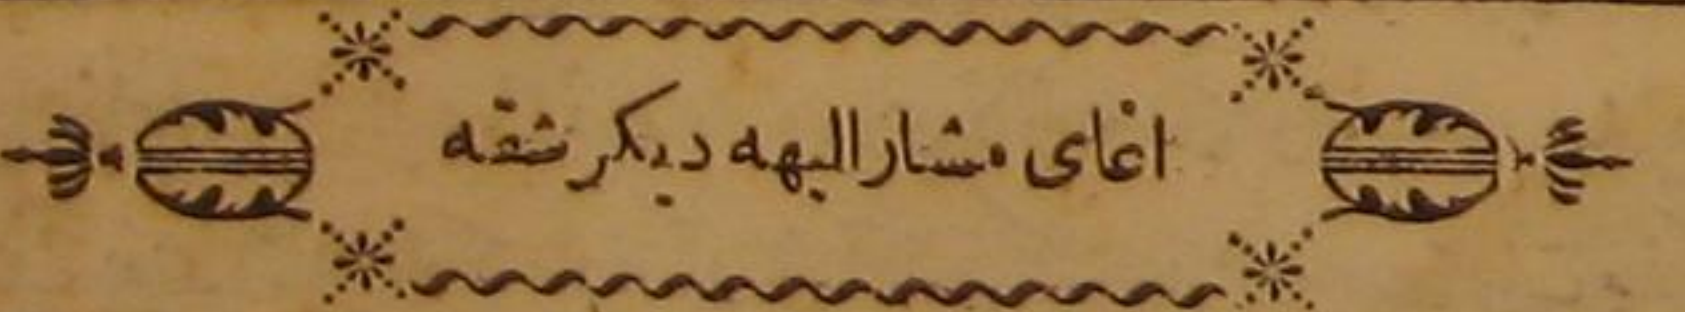 اغاى مشار اليهه ديكر شقه